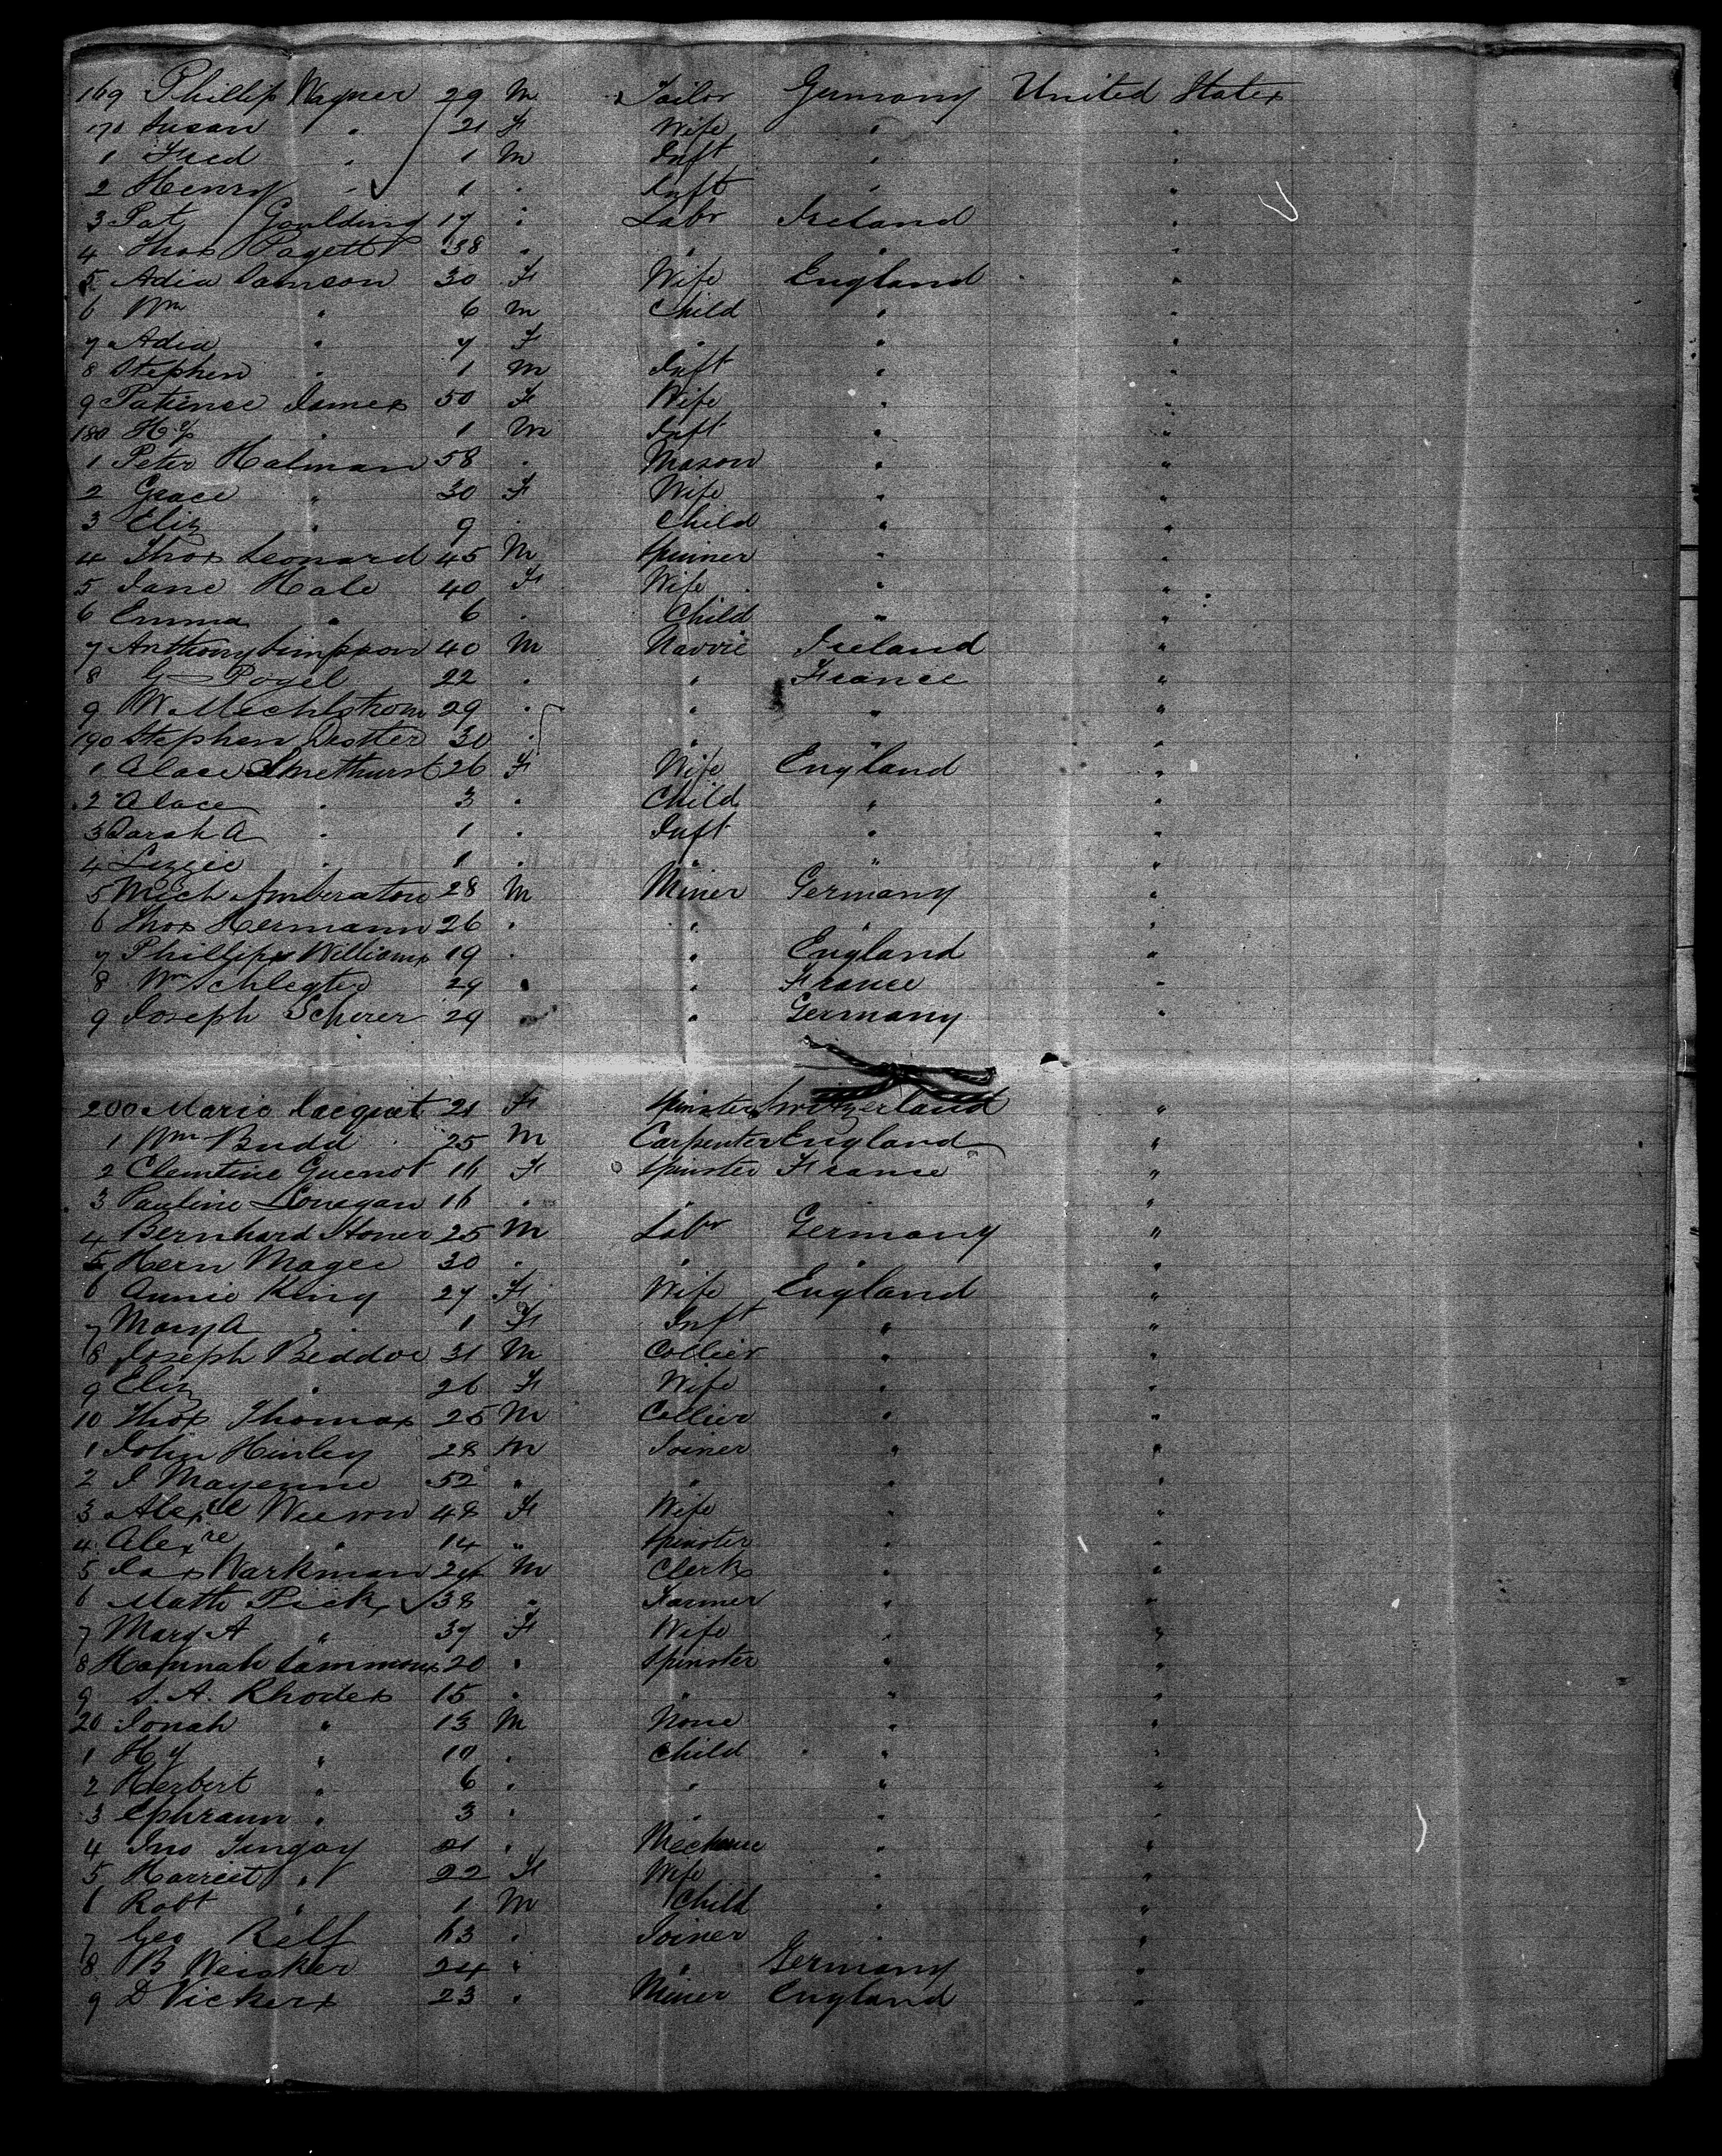 169 Phillip Wagner 29 M Tailor Germany United States
170 Susan " 21 F Wife " "
1 Fred " 1 M Inft " "
2 Henry " 1 " Inft " "
3 Pat Goulding 17 " Labr Ireland "
4 Thos Pagett 38 " " " "
5 Adia Samson 30 F Wife England "
6 Wm " 6 M Child " "
7 Adia " 7 F " " "
8 Stephen " 1 M Inft " "
9 Patience James 50 F Wife " "
180 Hy " 1 M Inft " "
1 Peter Halman 58 " Mason " "
2 Grace " 30 F Wife " "
3 Eliz " 9 " Child " "
4 Thos Leonard 45 M Spinner " "
5 Jane Hale 40 F Wife " "
6 Emma " 6 " Child " "
7 Anthony Simpson 40 M Navvie Ireland "
8 G Pogel 22 " " France "
9 W Mechlstrom 29 " " " "
190 Stephen Dotter 30 " " " "
1 Alace Smethurst 26 F Wife England "
2 Alace " 3 " Child " "
3 Sarah A " 1 " Inft " "
4 Lizzie " 1 " " " "
5 Mich Amberaton 28 M Miner Germany "
6 Thos Hermann 26 " " " "
7 Phillips Williams 19 " " England "
8 Wm Schlegter 29 " " France "
9 Joseph Scherer 29 " " Germany "
200 Marie Jacquet 21 F Spinster Switzerland "
1 Wm Budd 25 M Carpenter England "
2 Clemtine Guenot 16 F Spinster France "
3 Pauline Lonegan 16 " " " "
4 Bernhard Stoner 25 M Labr Germany "
5 Hern Magee 30 " " " "
6 Annie King 27 F Wife England "
7 Mary A " 1 F Inft " "
8 Joseph Beddoe 31 M Collier " "
9 Eliz " 26 F Wife " "
10 Thos Thomas 25 M Collier " "
1 John Hinley 28 M Joiner " "
2 J Mayenne 52 " " " "
3 Alex 48 F Wife " "
4 Alexre " 14 " Spinster " "
5 Jas Warkman 24 M Clerk " "
6 Math Pick 38 " Farmer " "
7 Mary A " 37 F Wife " "
8 Hannah Sammons 20 " Spinster " "
9 S. A. Rhodes 15 " " " "
20 Jonah " 13 M None " "
1 Hy " 10 " Child " "
2 Herbert " 6 " " " "
3 Ephraim " 3 " " " "
4 Jno Tingay 21 " Mechanic " "
5 Harriet " 22 F Wife " "
6 Robt " 1 M Child " "
7 Geo Relf 63 " Joiner " "
8 B Weisker 24 " " Germany "
9 D Vickers 23 " Miner England "